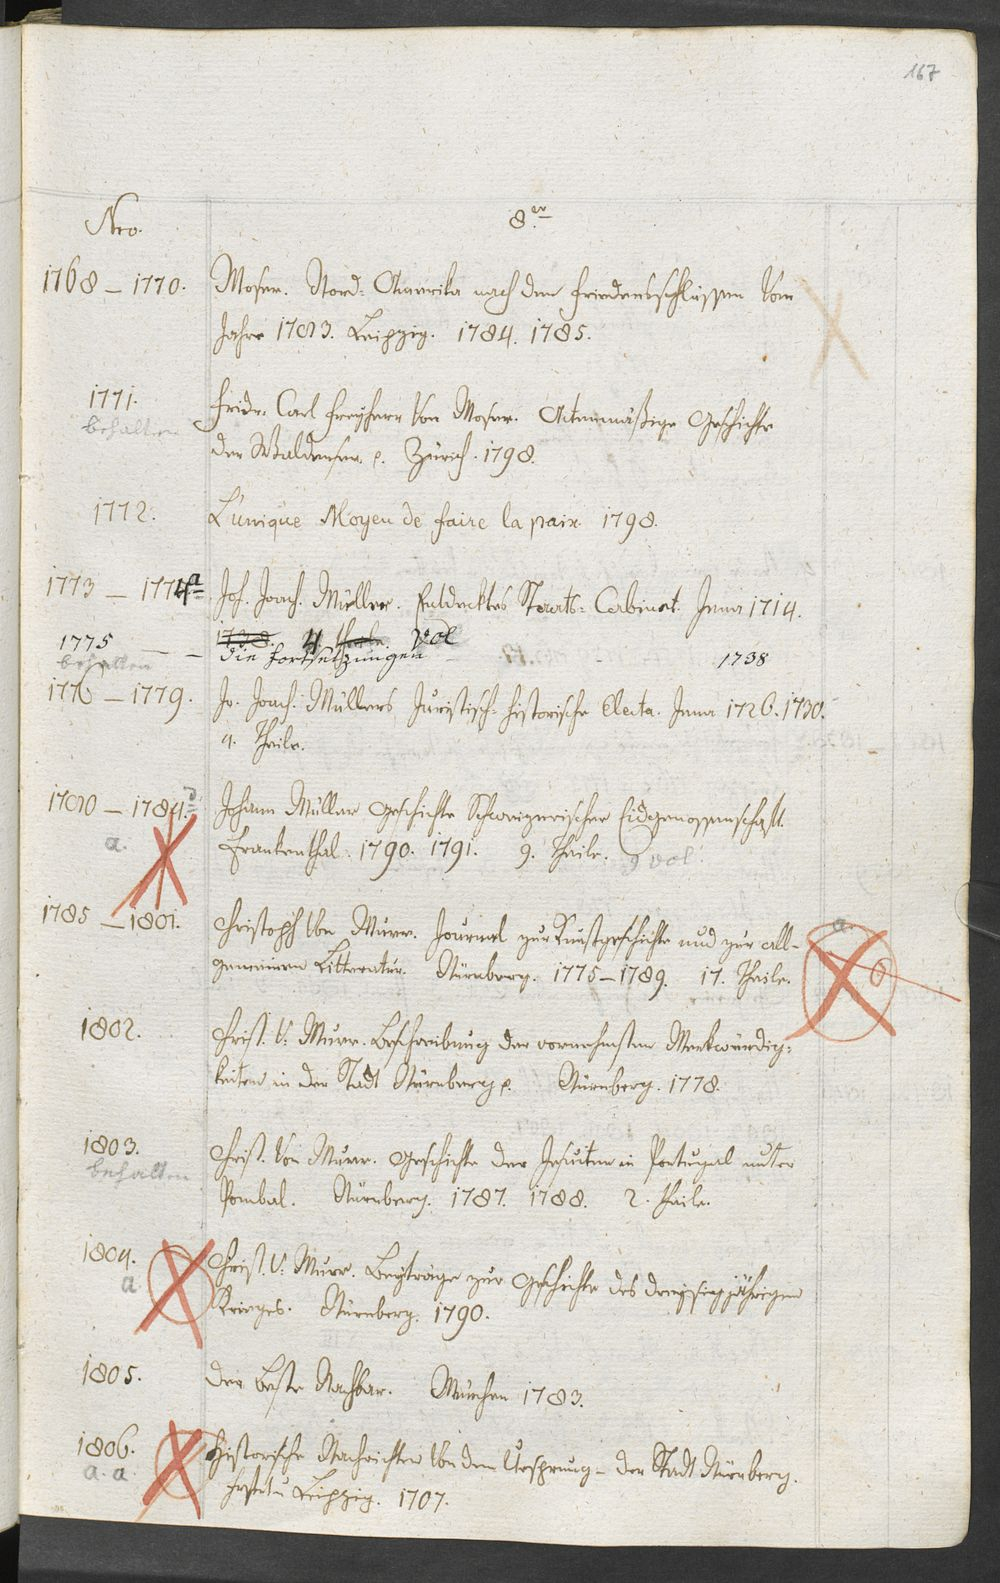 167
Nro. 8vo
1768 – 1770. Moser. Nord: Amerika nach den Friedensschlüssen vom
Jahre 1783. Leipzig. 1784. 1785.
1771. Fridr. Carl Freyherr von Moser. Actenmäßige Geschichte
behalten
der Waldenser. Zürich. 1798.
1772. L'unique Moyen de faire la paix. 1798.
1773 – 1774a Joh. Joach. Müller. Entdecktes Staats-Cabinet. Jena 1714.
1738. 4 Theile. Vol
1775 — – die Fortsetzungen 1738
behalten
1776 – 1779. Jo. Joach. Müllers Juristisch-historische Electa. Jena 1726. 1730.
4. Theile.
1780 – 1784.d Johann Müller Geschichte Schweizerischer Eidgenossenschaft.
a. Frankenthal. 1790. 1791. 9. Theile. 9 vol.
1785 – 1801. Christoph von Murr. Journal zur Kunstgeschichte und zur all- a.
gemeinen Litteratur. Nürnberg. 1775 – 1789. 17. Theile.
1802. Christ. v. Murr. Beschreibung der vornehmsten Merkwürdig-
keiten in der Stadt Nürnberg. Nürnberg. 1778.
1803. Christ. von Murr. Geschichte der Jesuiten in Portugal unter
behalten
Pombal. Nürnberg. 1787. 1788. 2. Theile.
1804. Christ. v. Murr. Beyträge zur Geschichte des dreyssigjährigen
a Krieges. Nürnberg. 1790.
1805. Der beste Nachbar. München 1783.
1806. Historische Nachrichten von dem Ursprung – der Stadt Nürnberg.
a. a. Leipzig. 1707.